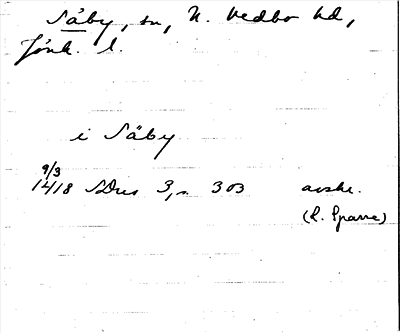 Säby, sn, N. Vedbo hd,
Jönk. l.
i Säby
9/3
1418 SDns 3, s. 303 avskr.
(R. Sparre)